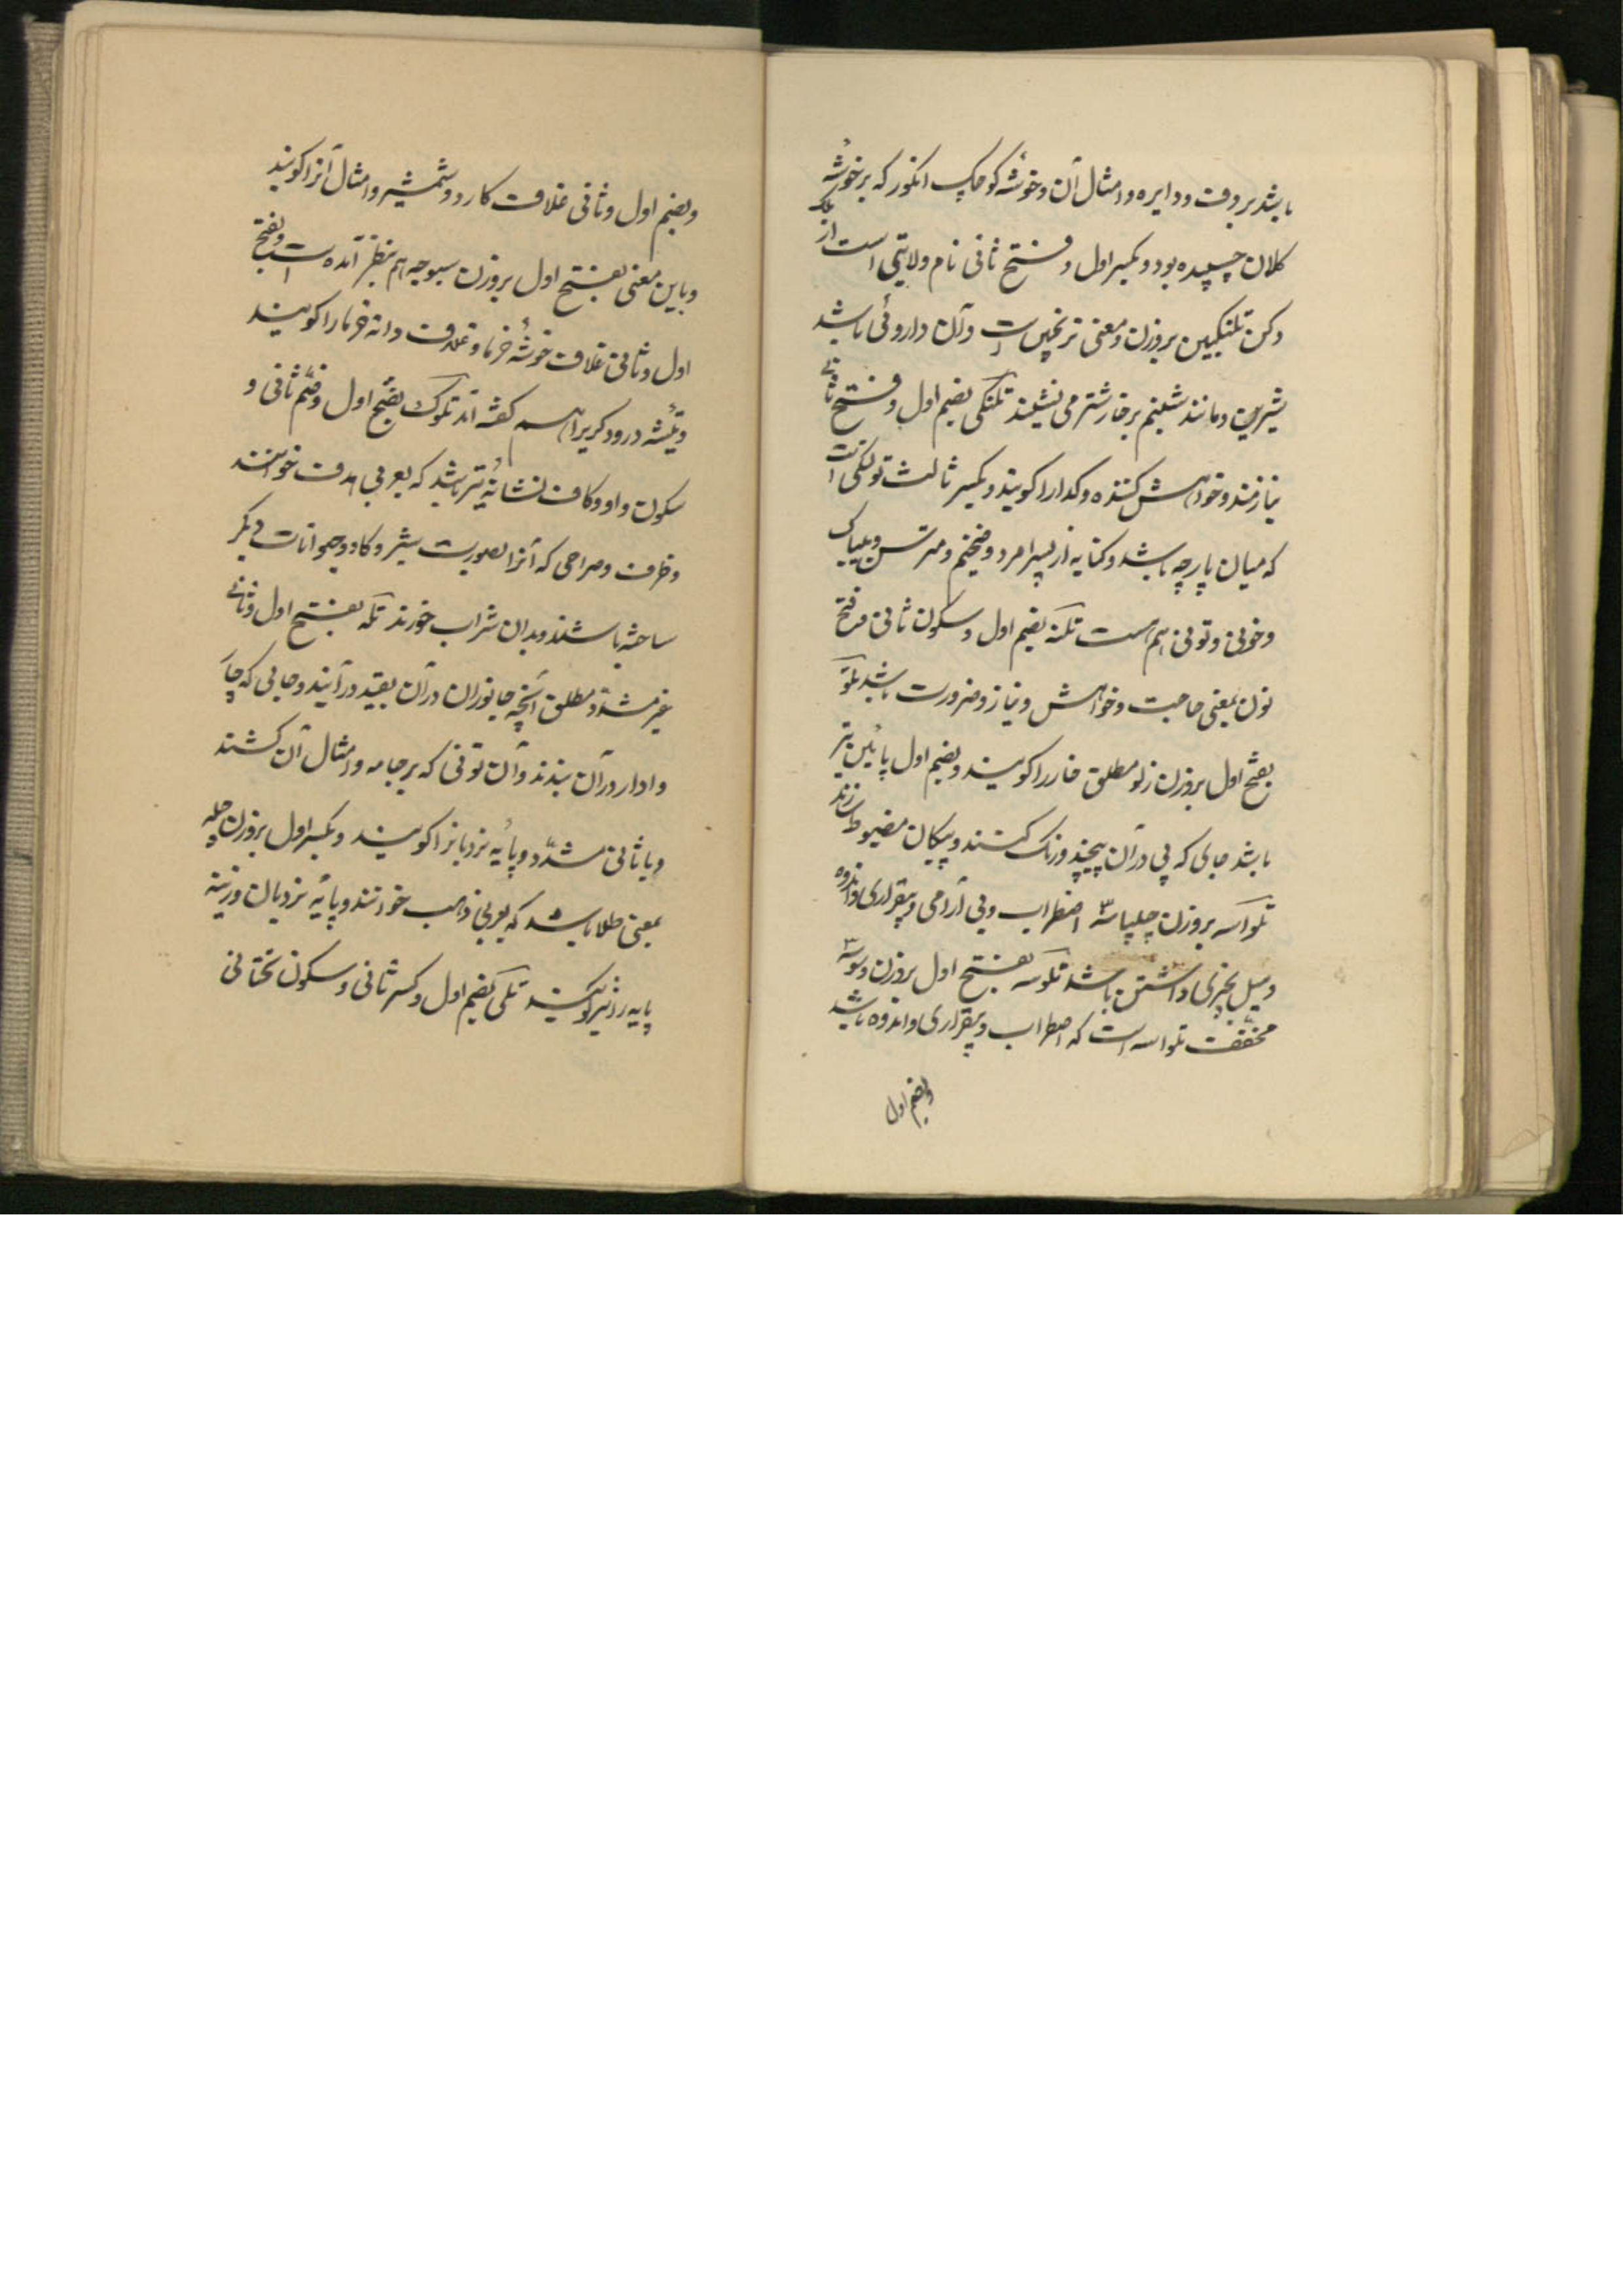 باشد بر دف و دایره و امثال آن و خوشه کوچک انکور که بر خوشه
کلان چسپیده بود و بکسر اول و فتح ثانی نام ولایتی است از ملک
دکن تلنکبین بر وزن و معنی ترنجبین است و آن داروئی باشد
شیرین و مانند شبنم بر خار شتر می نشیند تلنکی بضم اول و فتح ثانی
نیازمند و خواهش کننده و کدا را کویند و بکسر ثالث تولکی است
که میان پارچه باشد و کنایه از پسر امرد و ضخیم و مترس و بیباک
و خونی و تونی هم هست تلنه بضم اول و سکون ثانی و فتح
نون بمعنی حاجت و خواهش و نیاز و ضرورت باشد تلو
بفتح اول بر وزن زلو مطلق خار را کویند و بضم اول پائین تیر
باشد جای که پی در آن پیچند و رنک کنند و پیکان مضبوط سازند
تلواسه بر وزن چلپاسه اضطراب و بی آرامی و بیقراری و اندوه
و میل بچیزی داشتن باشد تلوسه بفتح اول بر وزن وسوسه
مخفف تلواسه است که اضطراب و بیقراری و اندوه باشد
وبضم اول
وبضم اول و ثانی غلاف کارد و شمشیر و امثال آنرا کویند
و باین معنی بفتح اول بر وزن سبوچه هم بنظر آمده است و بفتح
اول و ثانی غلاف خوشه خرما و غلاف دانه خرما را کویند
و تیشه درودکر را هم کفته اند تلوک بفتح اول و ضم ثانی و
سکون واو و کاف نشانه تیر باشد که بعربی هدف خوانند
و ظرف و صراحی که آنرا بصورت شیر و کاو و حیوانات دیکر
ساخته باشند و بدان شراب خورند تله بفتح اول و ثانی
غیر مشدد مطلق آنچه جانوران در آن بقید در آیند و جائی که چار
وا دار در آن بندند و آن توئی که بر جامه و امثال آن کشند
و با ثانی مشدد و پایه نردبانرا کویند و بکسر اول بر وزن چله
بمعنی طلا باشد که بعربی ذهب خوانند و پایه نردبان و زینه
پایه را نیز کویند تلی بضم اول و کسر ثانی و سکون تحتانی